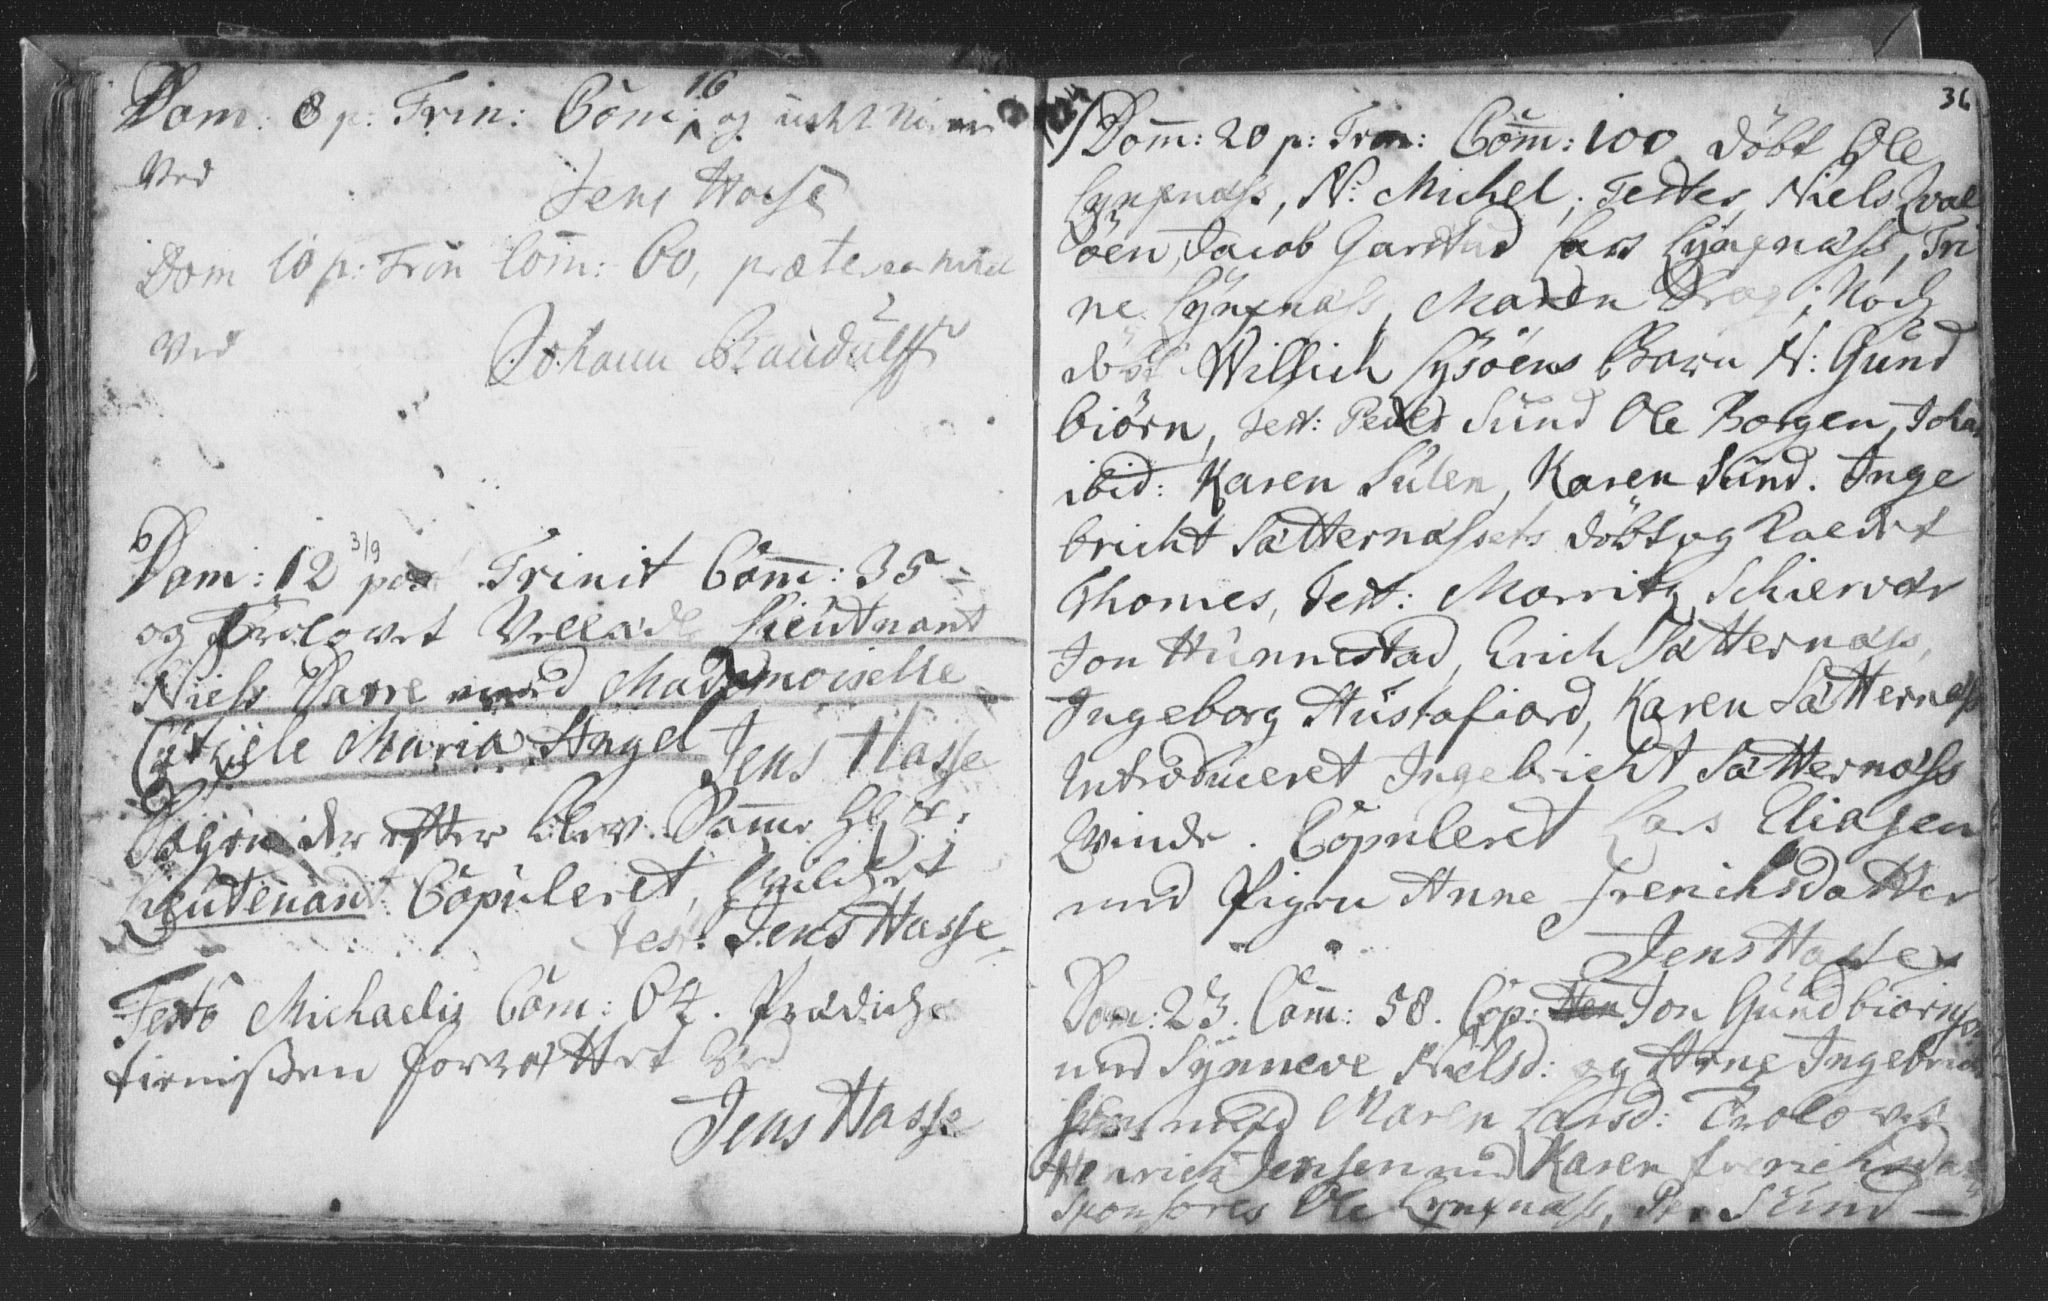 16
Dom: 8 p: Trin: Com: og
Ved
Jens Hasse
Dom 10 p: Trin Com: 60, præterea
Ved
Johann Randulff
3/9
Dom: 12 post Trinit Com: 35
og Trolovet Velædle Lieutnant
Niels Darre med Mademoiselle
Maria Angel Jens Hasse
Dagen der efter blev Samme
Lieutenant Copuleret,
Test: Jens Hasse
Festo Michaelis Com: 64. Prædiche
tienisten forrættet Ved
Jens Hasse
36
Domm: 20 p: Trin: Comm: 100 döbt Ole
Lyngnæss, N: Michel, Testes, Niels Qval
öen, Jacob Garstad Lars Lyngnæss, Tri
ne Lyngnæss, Maren; Noch
döbt Willich Lysöens Barn N: Gund
biörn, Test: Peder Sund Ole Borgen, Johan
ibid: Karen Sulen, Karen Sund. Inge
bricht Sætternæssets döbt og Kaldet
Thomes, Test: Morritz Schiervær
Jon Hunnestad, Erich Sætternæss,
Ingeborg Hustafiord, Karen Sætternæss
Introduceret Ingebricht Sætternæss
Qvinde. Copuleret Lars Eliasen
med Pigen Anne Frerichsdatter
Jens Hasse
Dom: 23. Comm: 58. Cop: Jon Gundbiörns
med Synneve Nielsd: og Arne Ingebricht
sen med Maren Larsd: Trolovet
Henrich Jensen med Karen Frerichsdatter
Sponsores Ole Lyngnæss, Per Sund